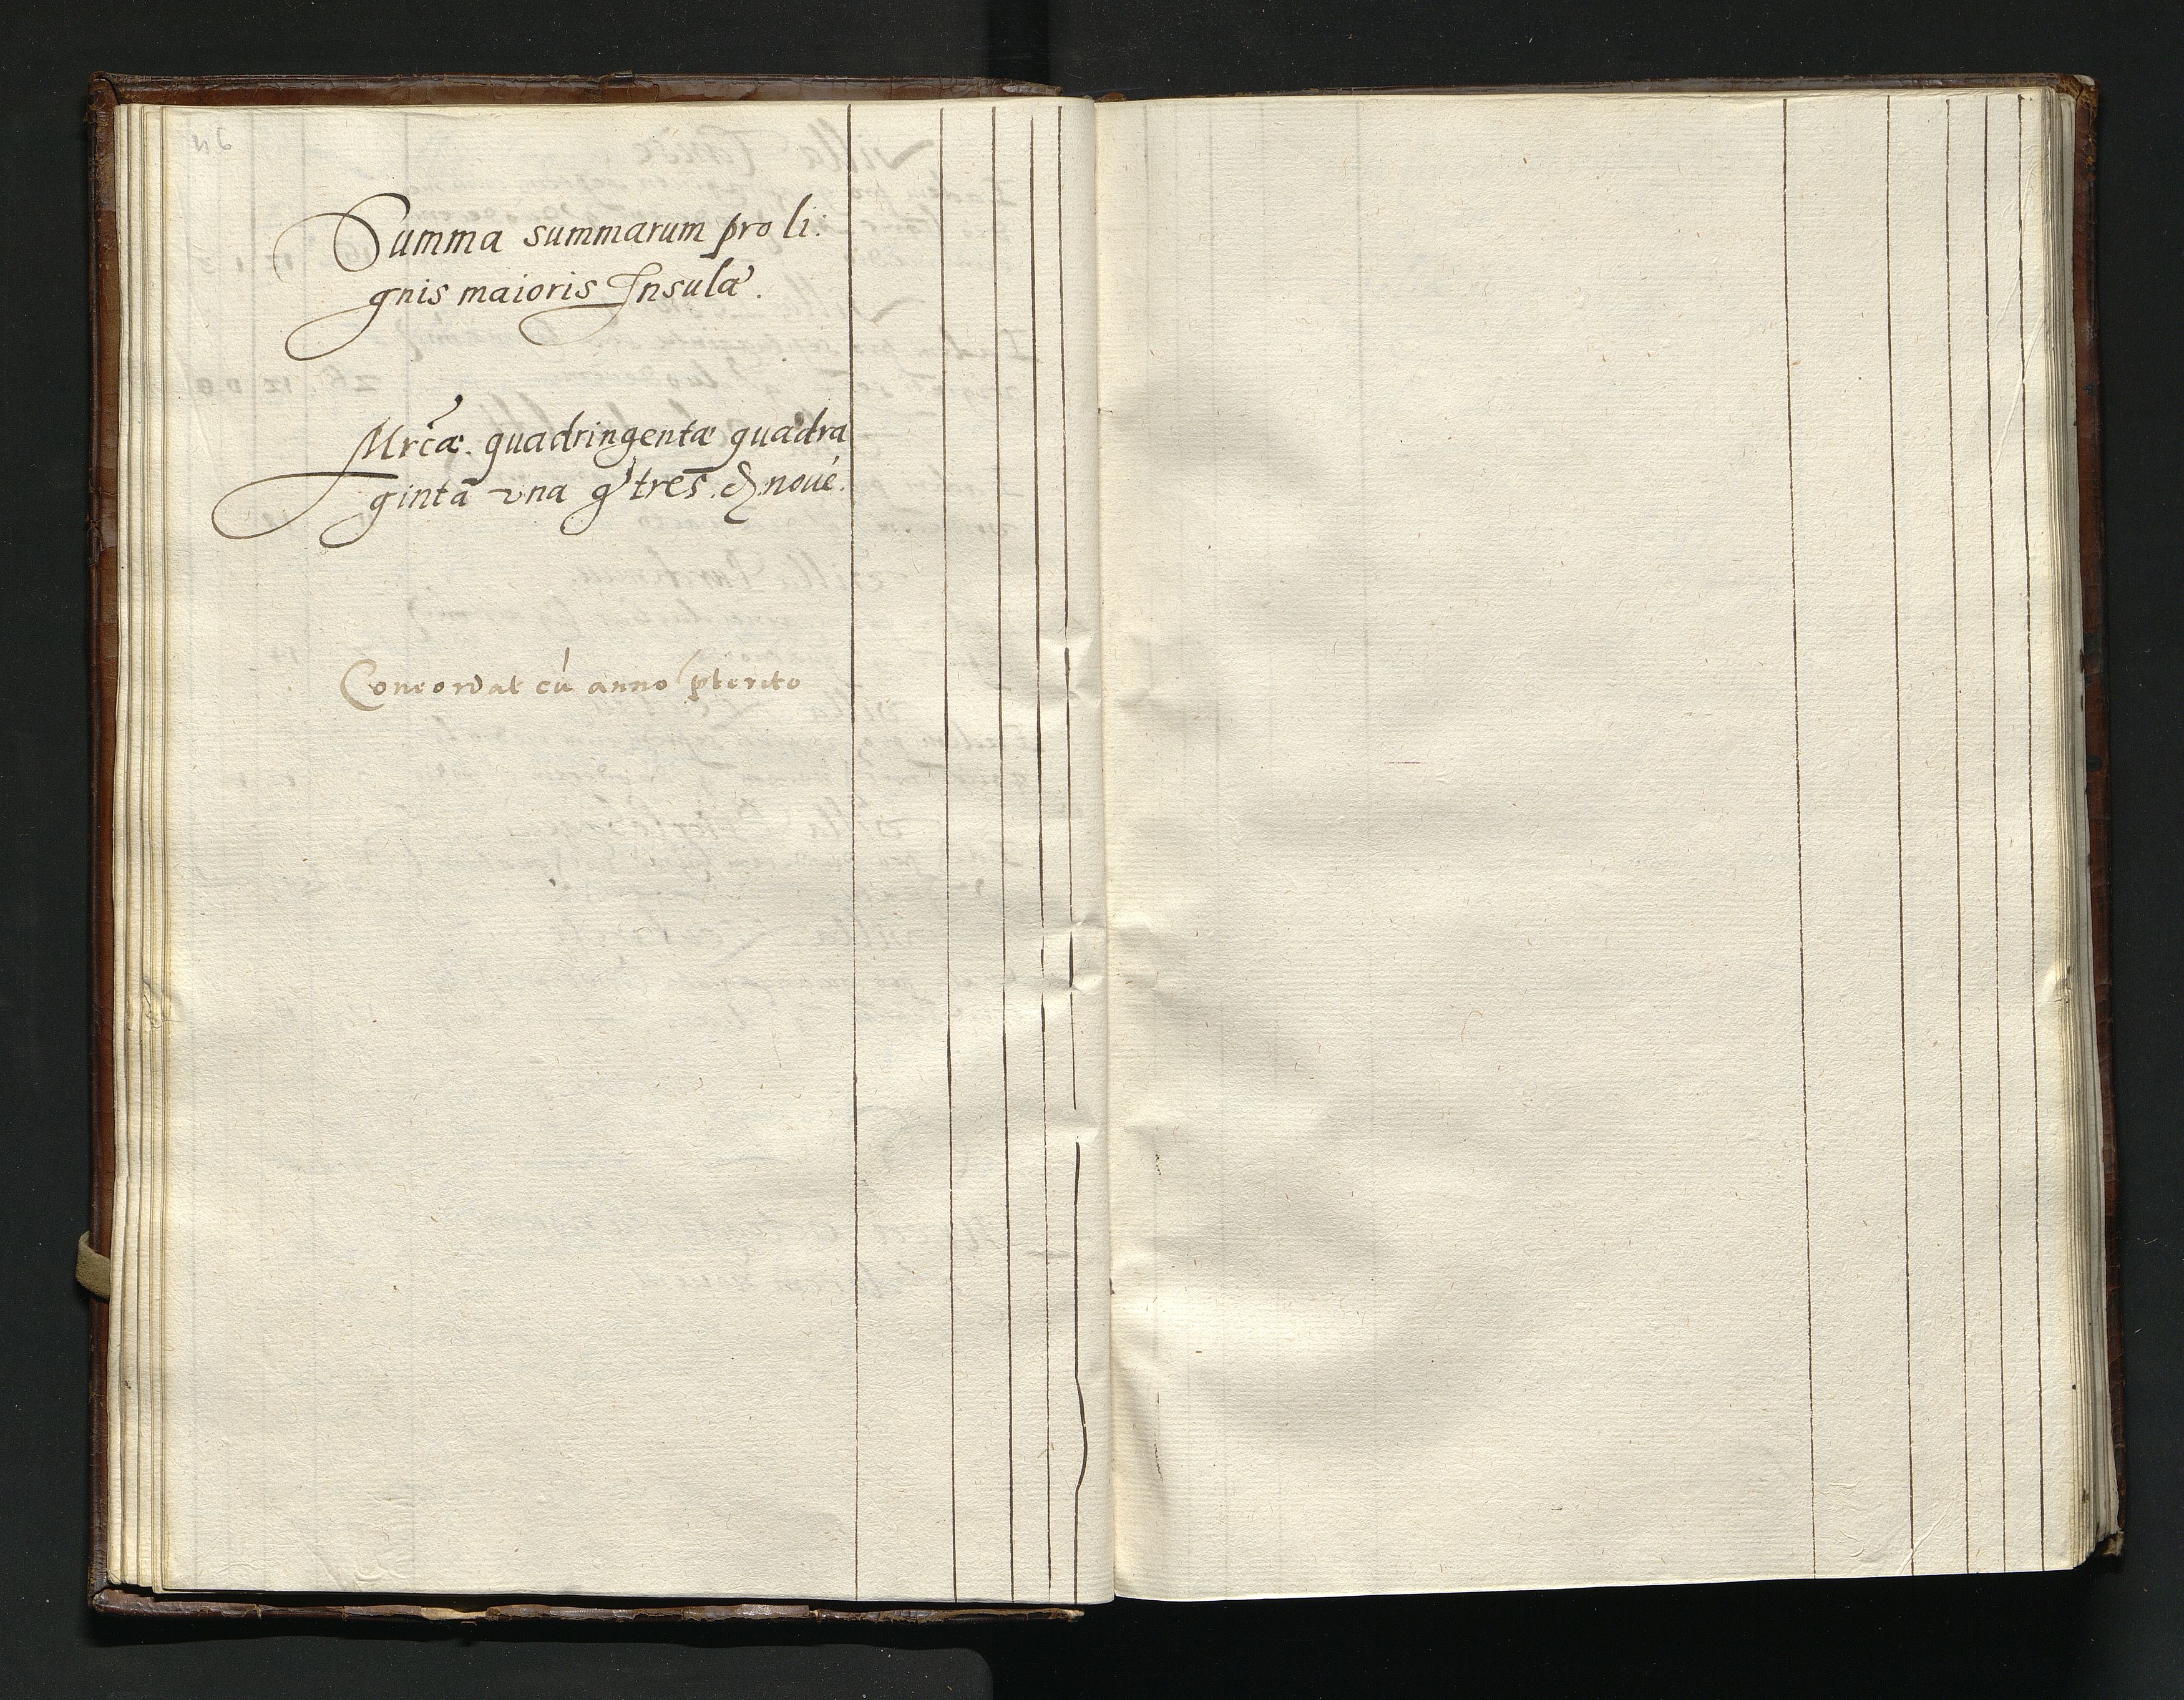 Summa summarum pro li:
gnis maioris Insulæ.
Mrcæ. quadringentæ quadra
ginta una g tres. & noué.
Concordat cú anno pterito